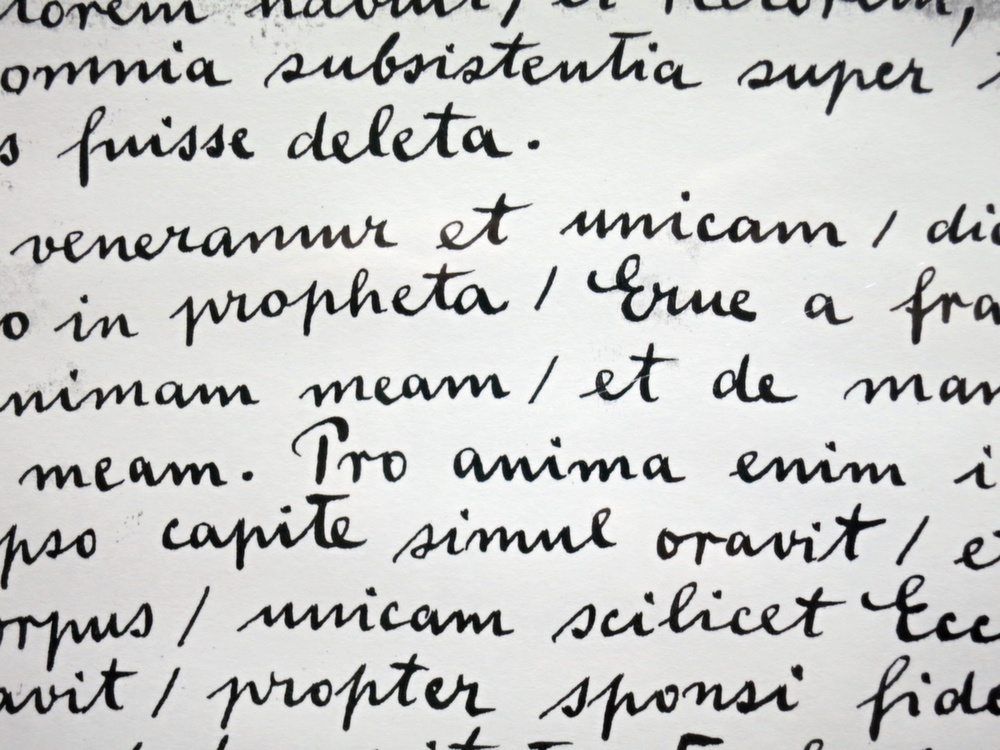 omnia subsistentia super
s fuisse deleta.
veneramur et unicam / dic
o in propheta / Erue a fra
nimam meam / et de man
meam. Pro anima enim i
pso capite simul oravit / et
orpus / unicam scilicet Ecc
avit / propter sponsi fide